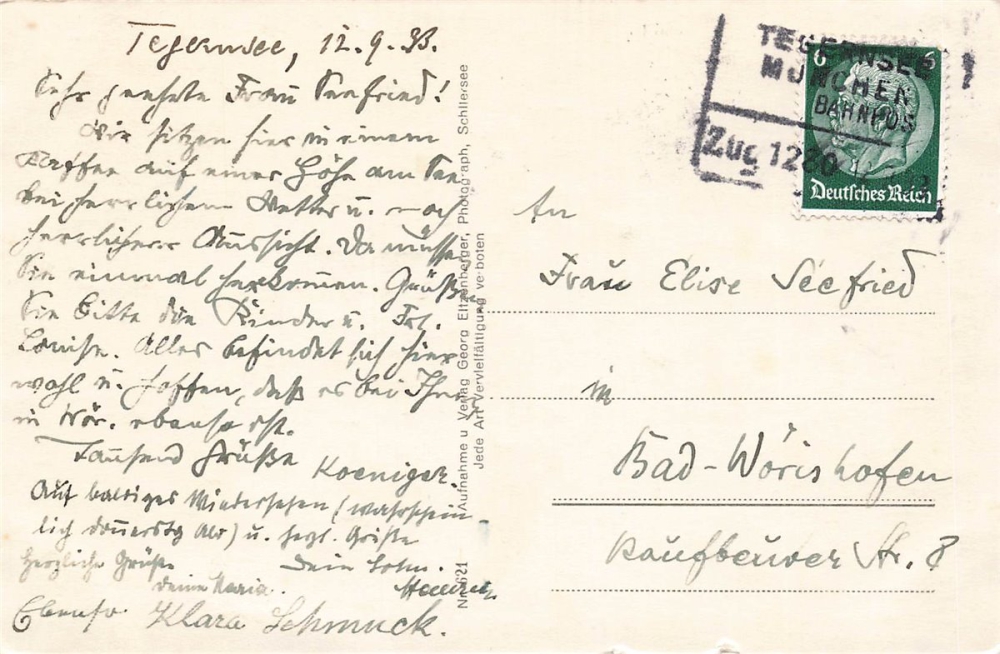 Tegernsee, 12.9.33.
Sehr geehrte Frau Seefried!
Wir sitzen hier in einem
Kaffee auf einer Höhe am See
bei herrlichem Wetter u. noch
herrlicherer Aussicht. Da müssen
Sie einmal herkommen. Grüßen
Sie bitte die Kinder u. Frl.
Louise. Alles befindet sich hier
wohl u. hoffen, daß es bei Ihnen
in Wör. ebenso ist.
Tausend Grüße Koeniger.
Auf baldiges Wiedersehen (wahrschein
lich donnerstg Abd) u. herzl. Grüße
Herzliche Grüße Dein Sohn.
Deine Maria.
Ebenso Klara Schmuck.
Nr. 621 Aufnahme u Verlag Georg Eitzenberger, Photograph, Schliersee
Jede Art Vervielfältigung verboten
TEGERNSEE
MÜNCHEN
BAHNPOS
Zug 1280
6 6
Deutsches Reich
An
Frau Elise Seefried
in
Bad-Wörishofen
Kaufbeurer Str. 8